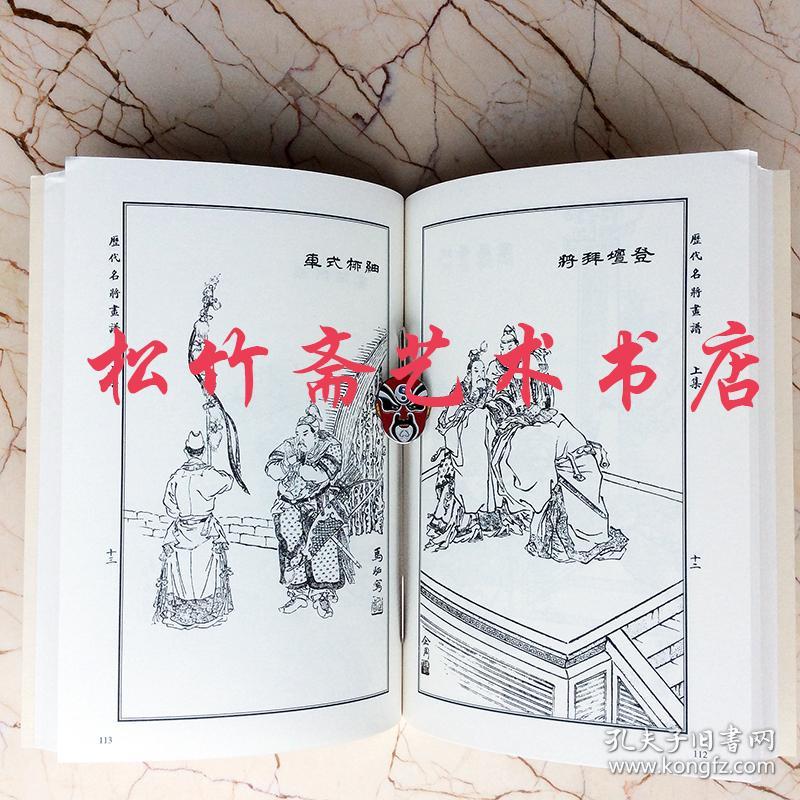 歷代名將畫譜 上集
十二
登壇拜將
112
歷代名將畫譜
十三
細柳式車
113
松竹斋艺术书店
孔夫子旧書网
www.kongfz.com